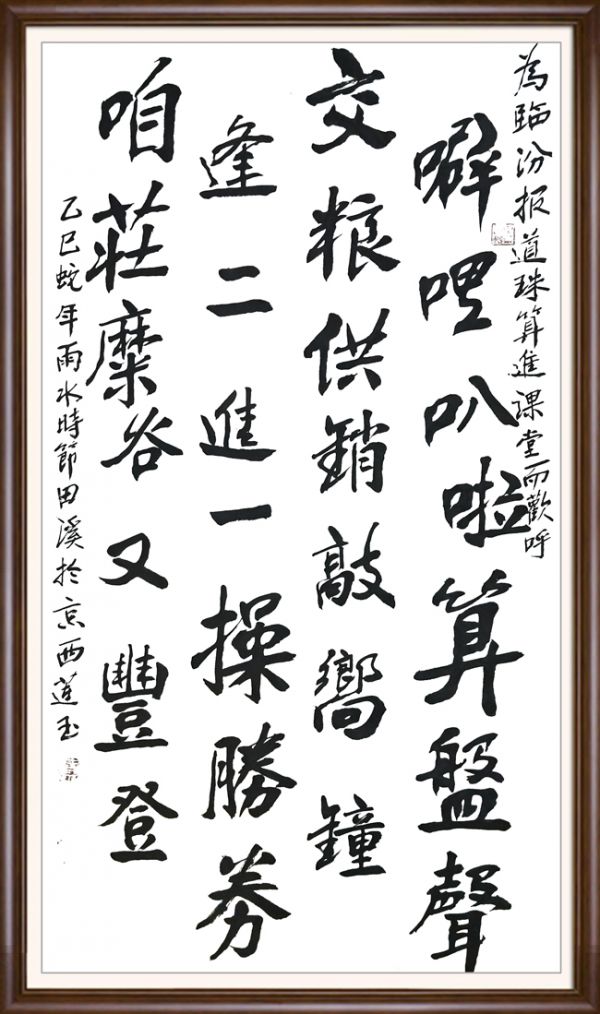 為臨汾报道珠算進课堂而歡呼
噼哩叭啦算盤聲
交粮供銷敲嚮鐘
逢二進一操勝券
咱莊糜谷又豐登
乙巳蛇年雨水時節田溪於京西蓮玉